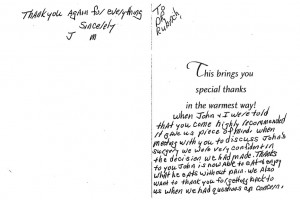 Thank you again for everything
Sincerely
J m
To
Dr.
This brings you
special thanks
in the warmest way!
When John & I were told
that you come highly recommended
it gave us piece of mind. When
meeting with you to discuss John's
surgery we were very confident in
the decision we had made. Thanks
to you John is now able to eat & enjoy
what he eats without pain. We Also
want to thank you for getting back to
us when we had questions or concern.